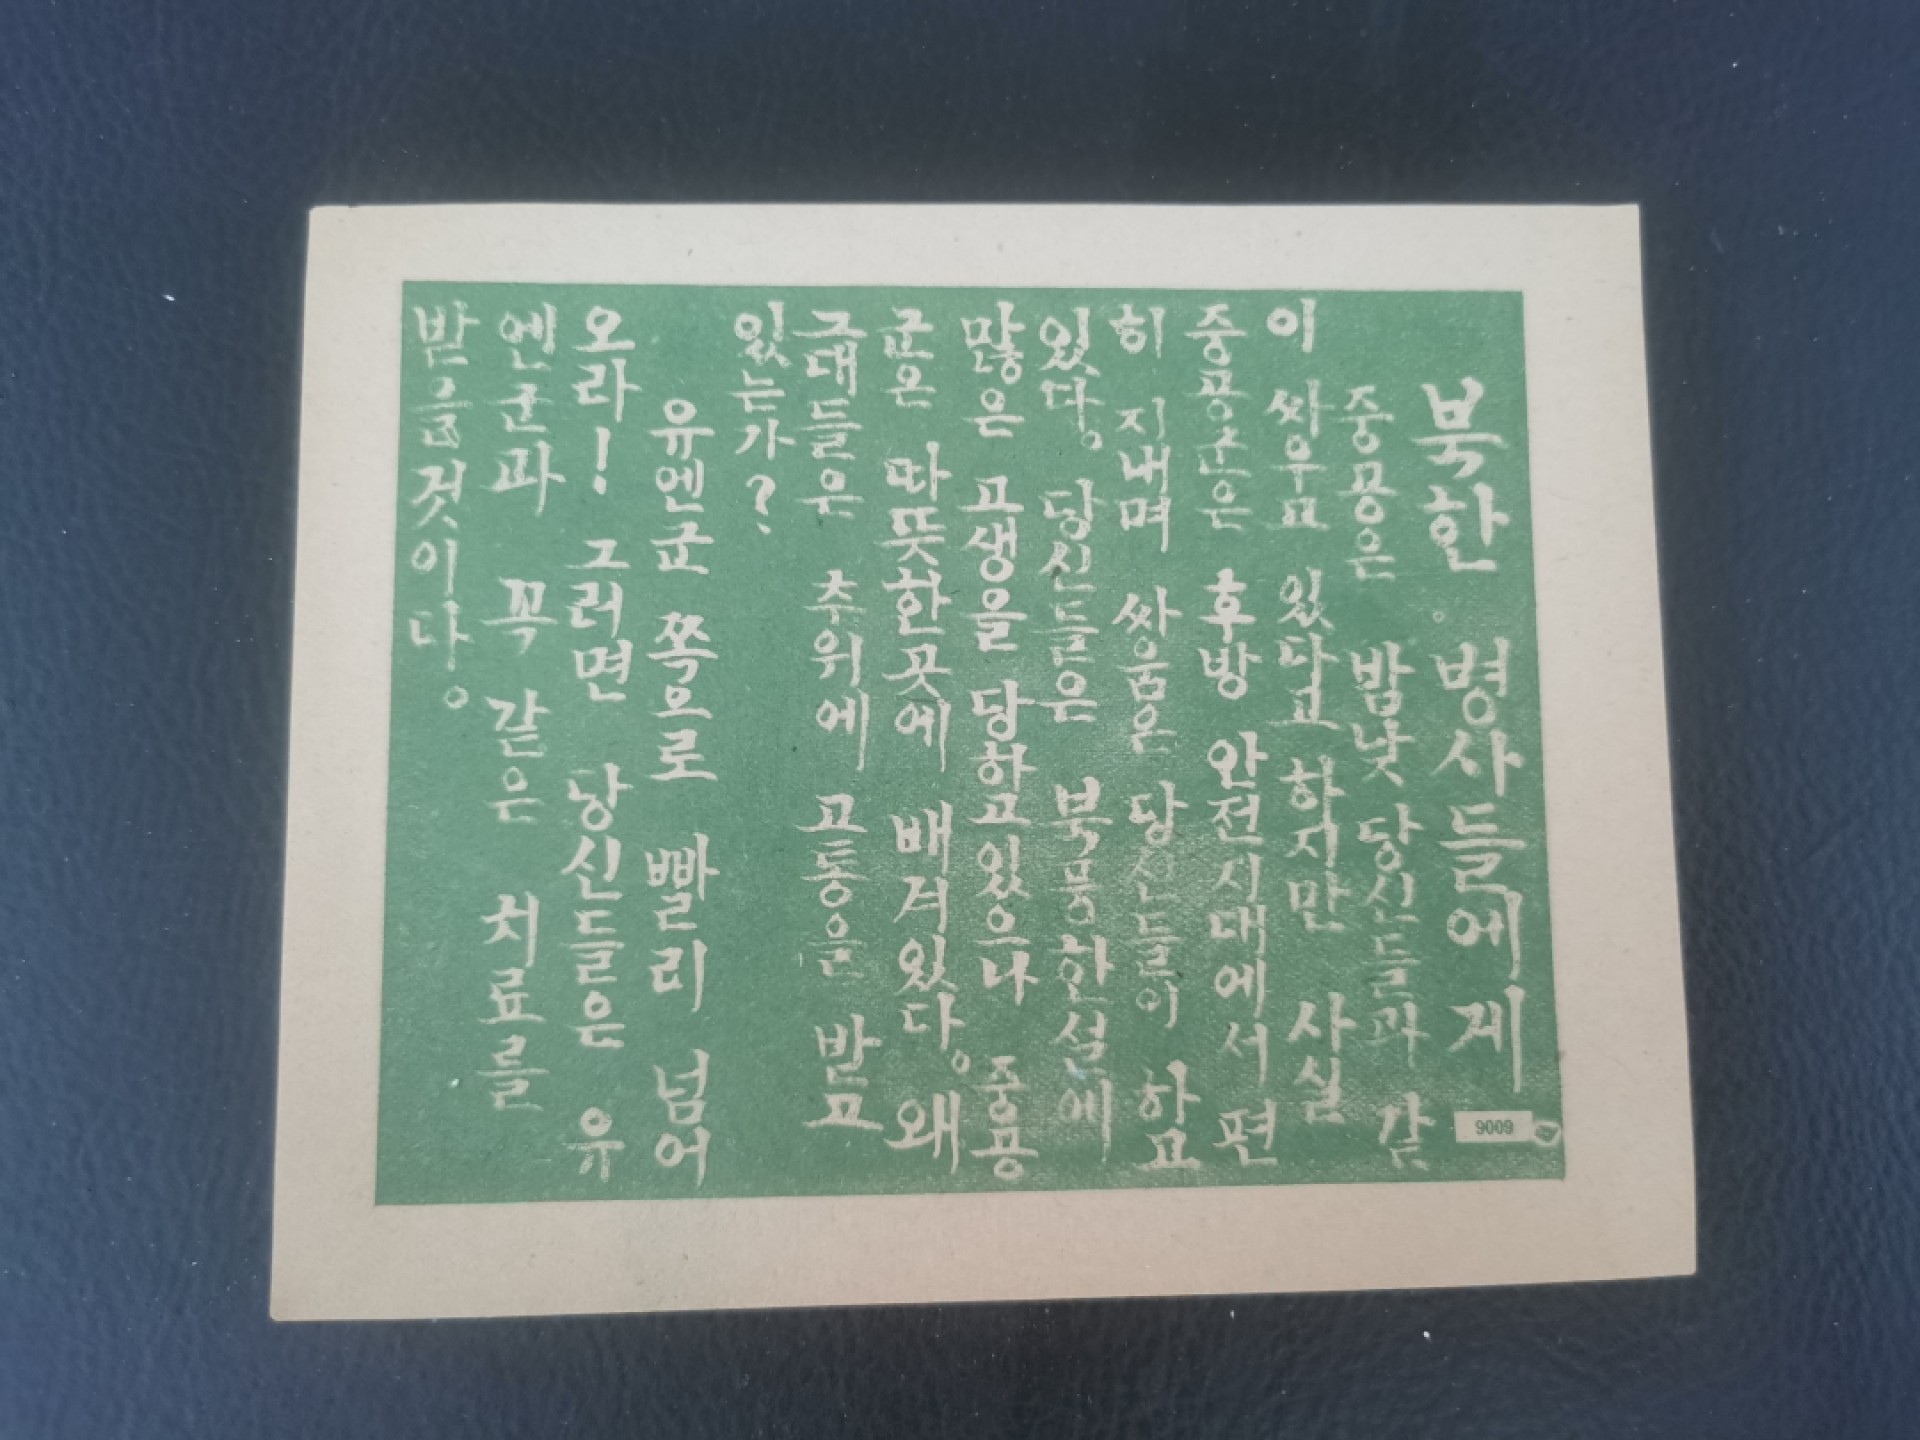 북한 병사들에게
중공은 밤낮 당신들과 같
이 싸우고 있다고 하지만 사실
중공군은 후방 안전시대에서 편
히 지내며 싸움은 당신들이 하고
있다. 당신들은 북풍한설에
많은 고생을 당하고 있으나 중공
군은 따뜻한 곳에 배겨있다. 왜
그대들은 추위에 고통을 받고
있는가?
유엔군 쪽으로 빨리 넘어
오라! 그러면 당신들은 유
엔군과 꼭 같은 치료를
받을것이다.
9009